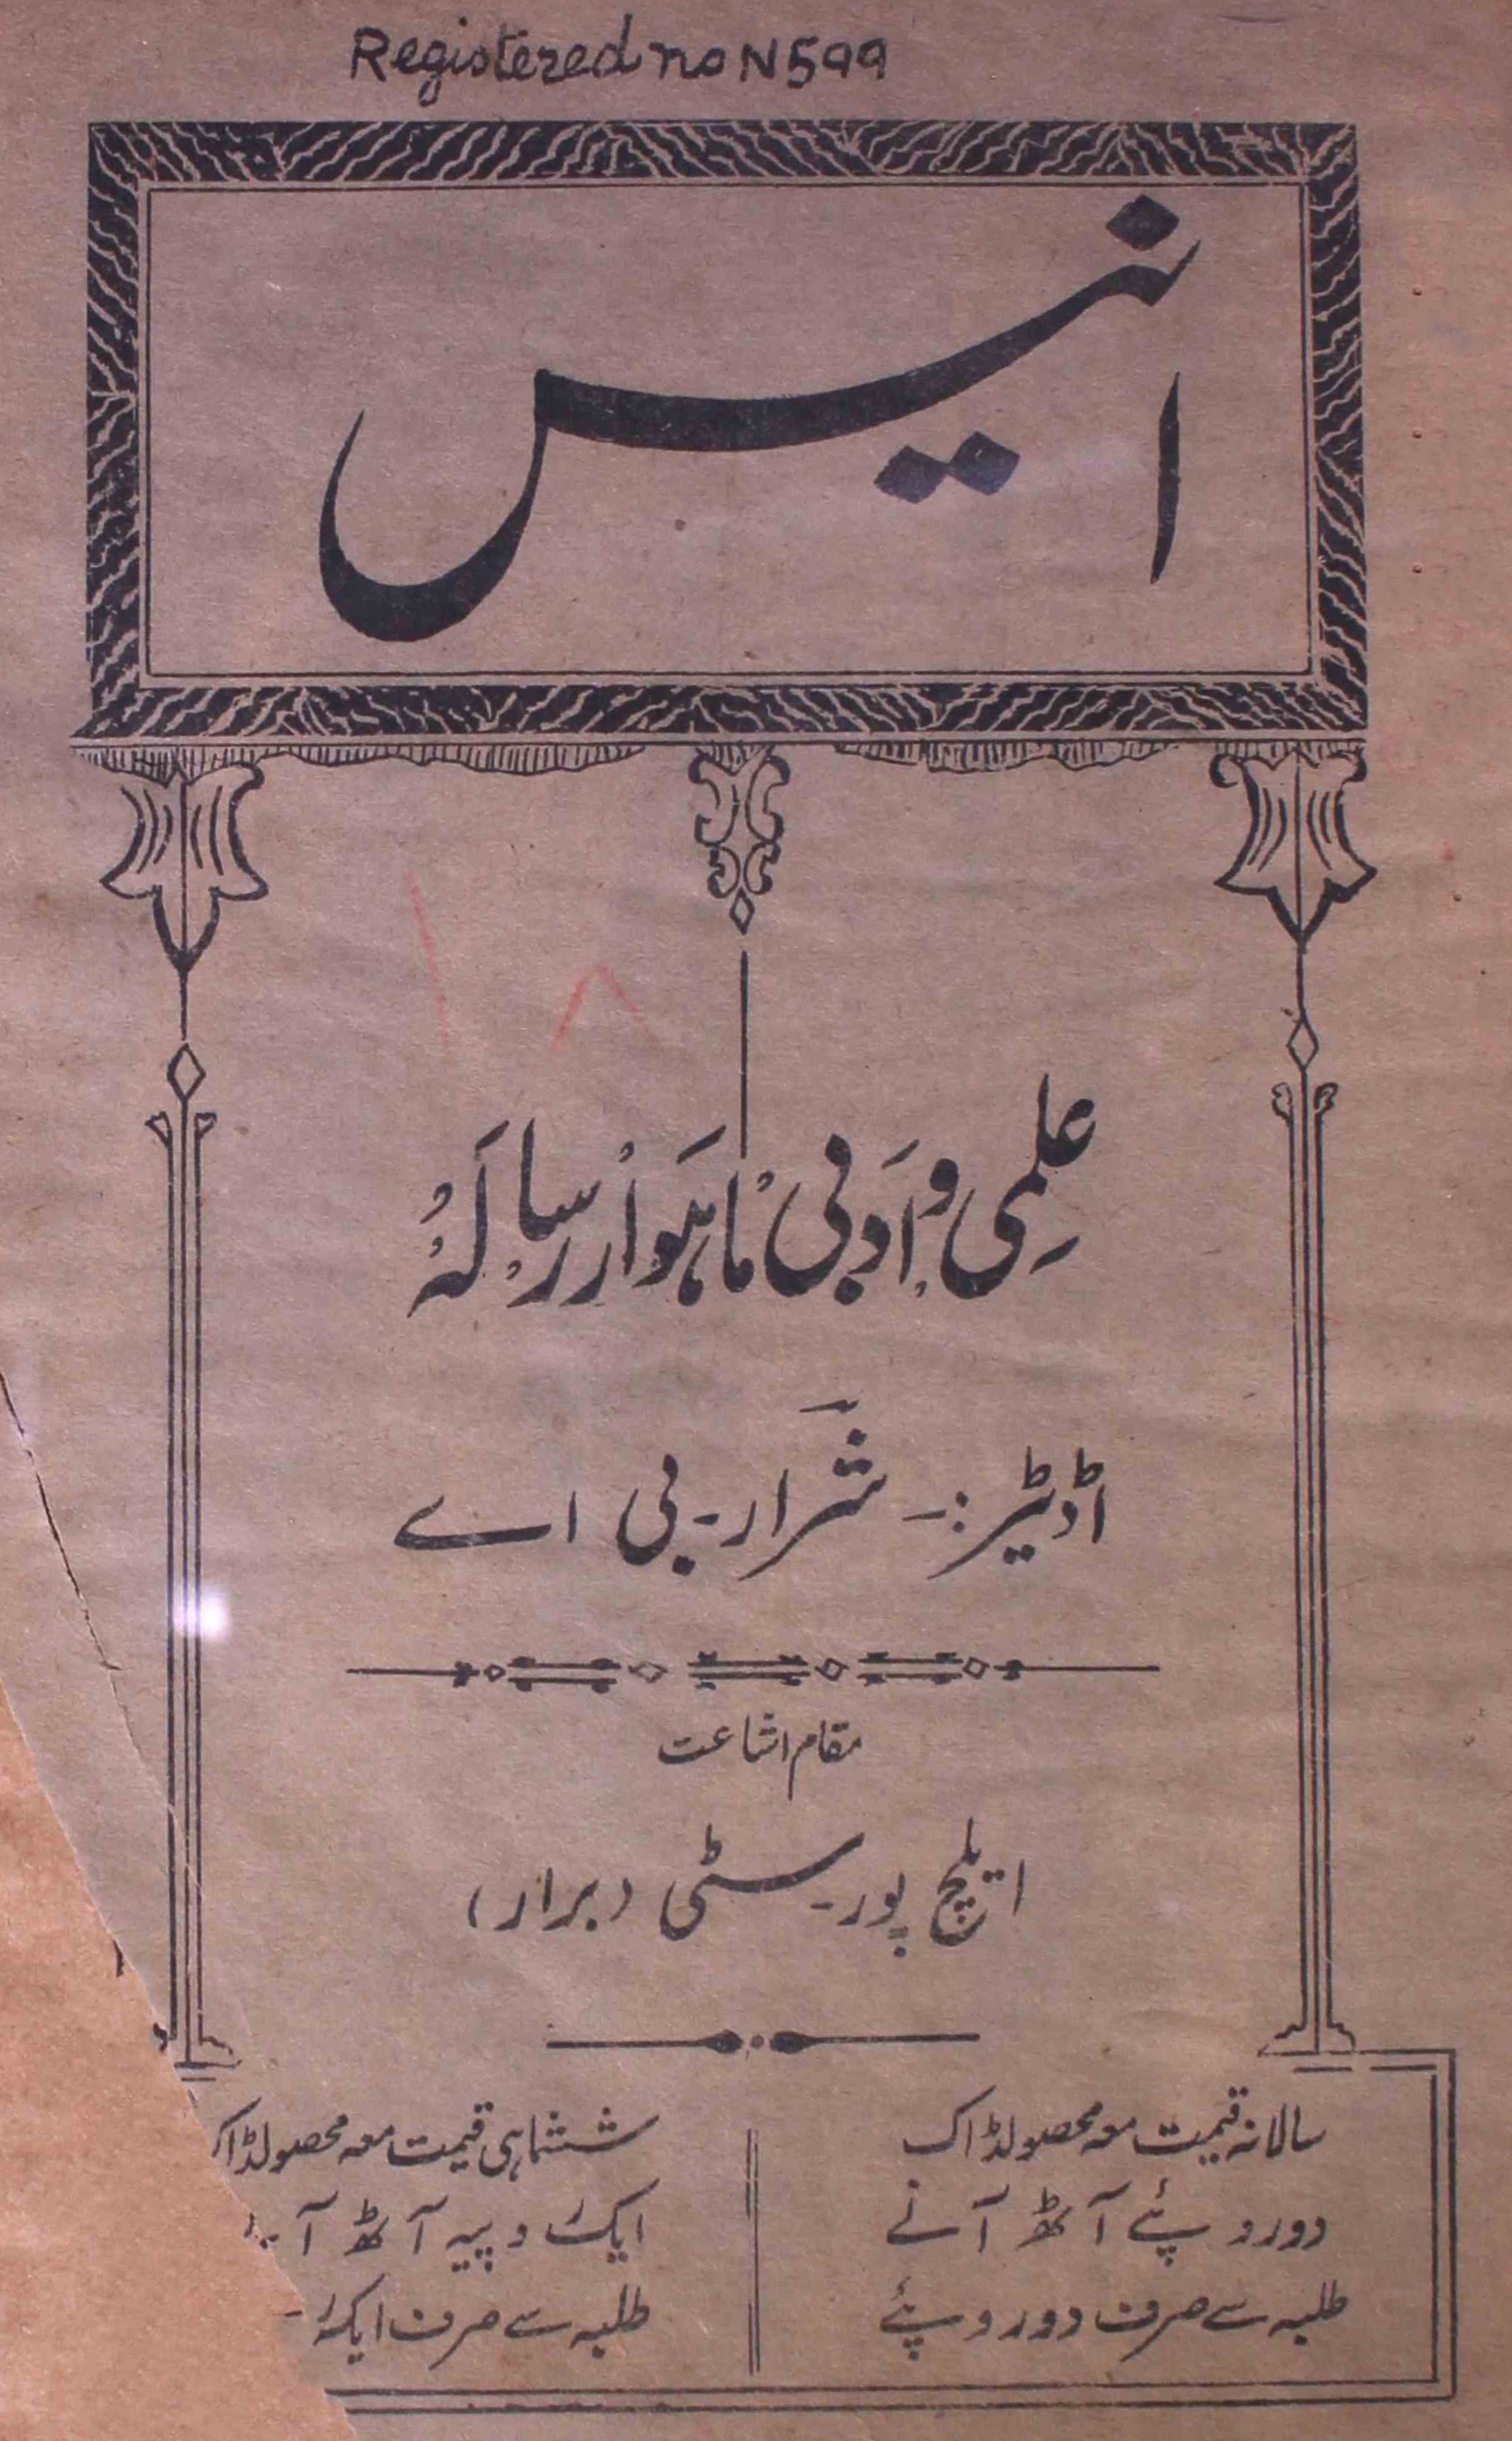 Registered no N599
انیس
علمی و ادبی ماہوار رسالہ
اڈیٹر:۔ شرار۔ بی اے
مقام اشاعت
ایلچ پور۔ سٹی (برار)
سالانہ قیمت معہ محصولڈاک
دو روپئے آٹھ آنے
طلبہ سے صرف دو روپئے
ششماہی قیمت معہ محصولڈاک
ایک روپیہ آٹھ
طلبہ سے صرف ایک